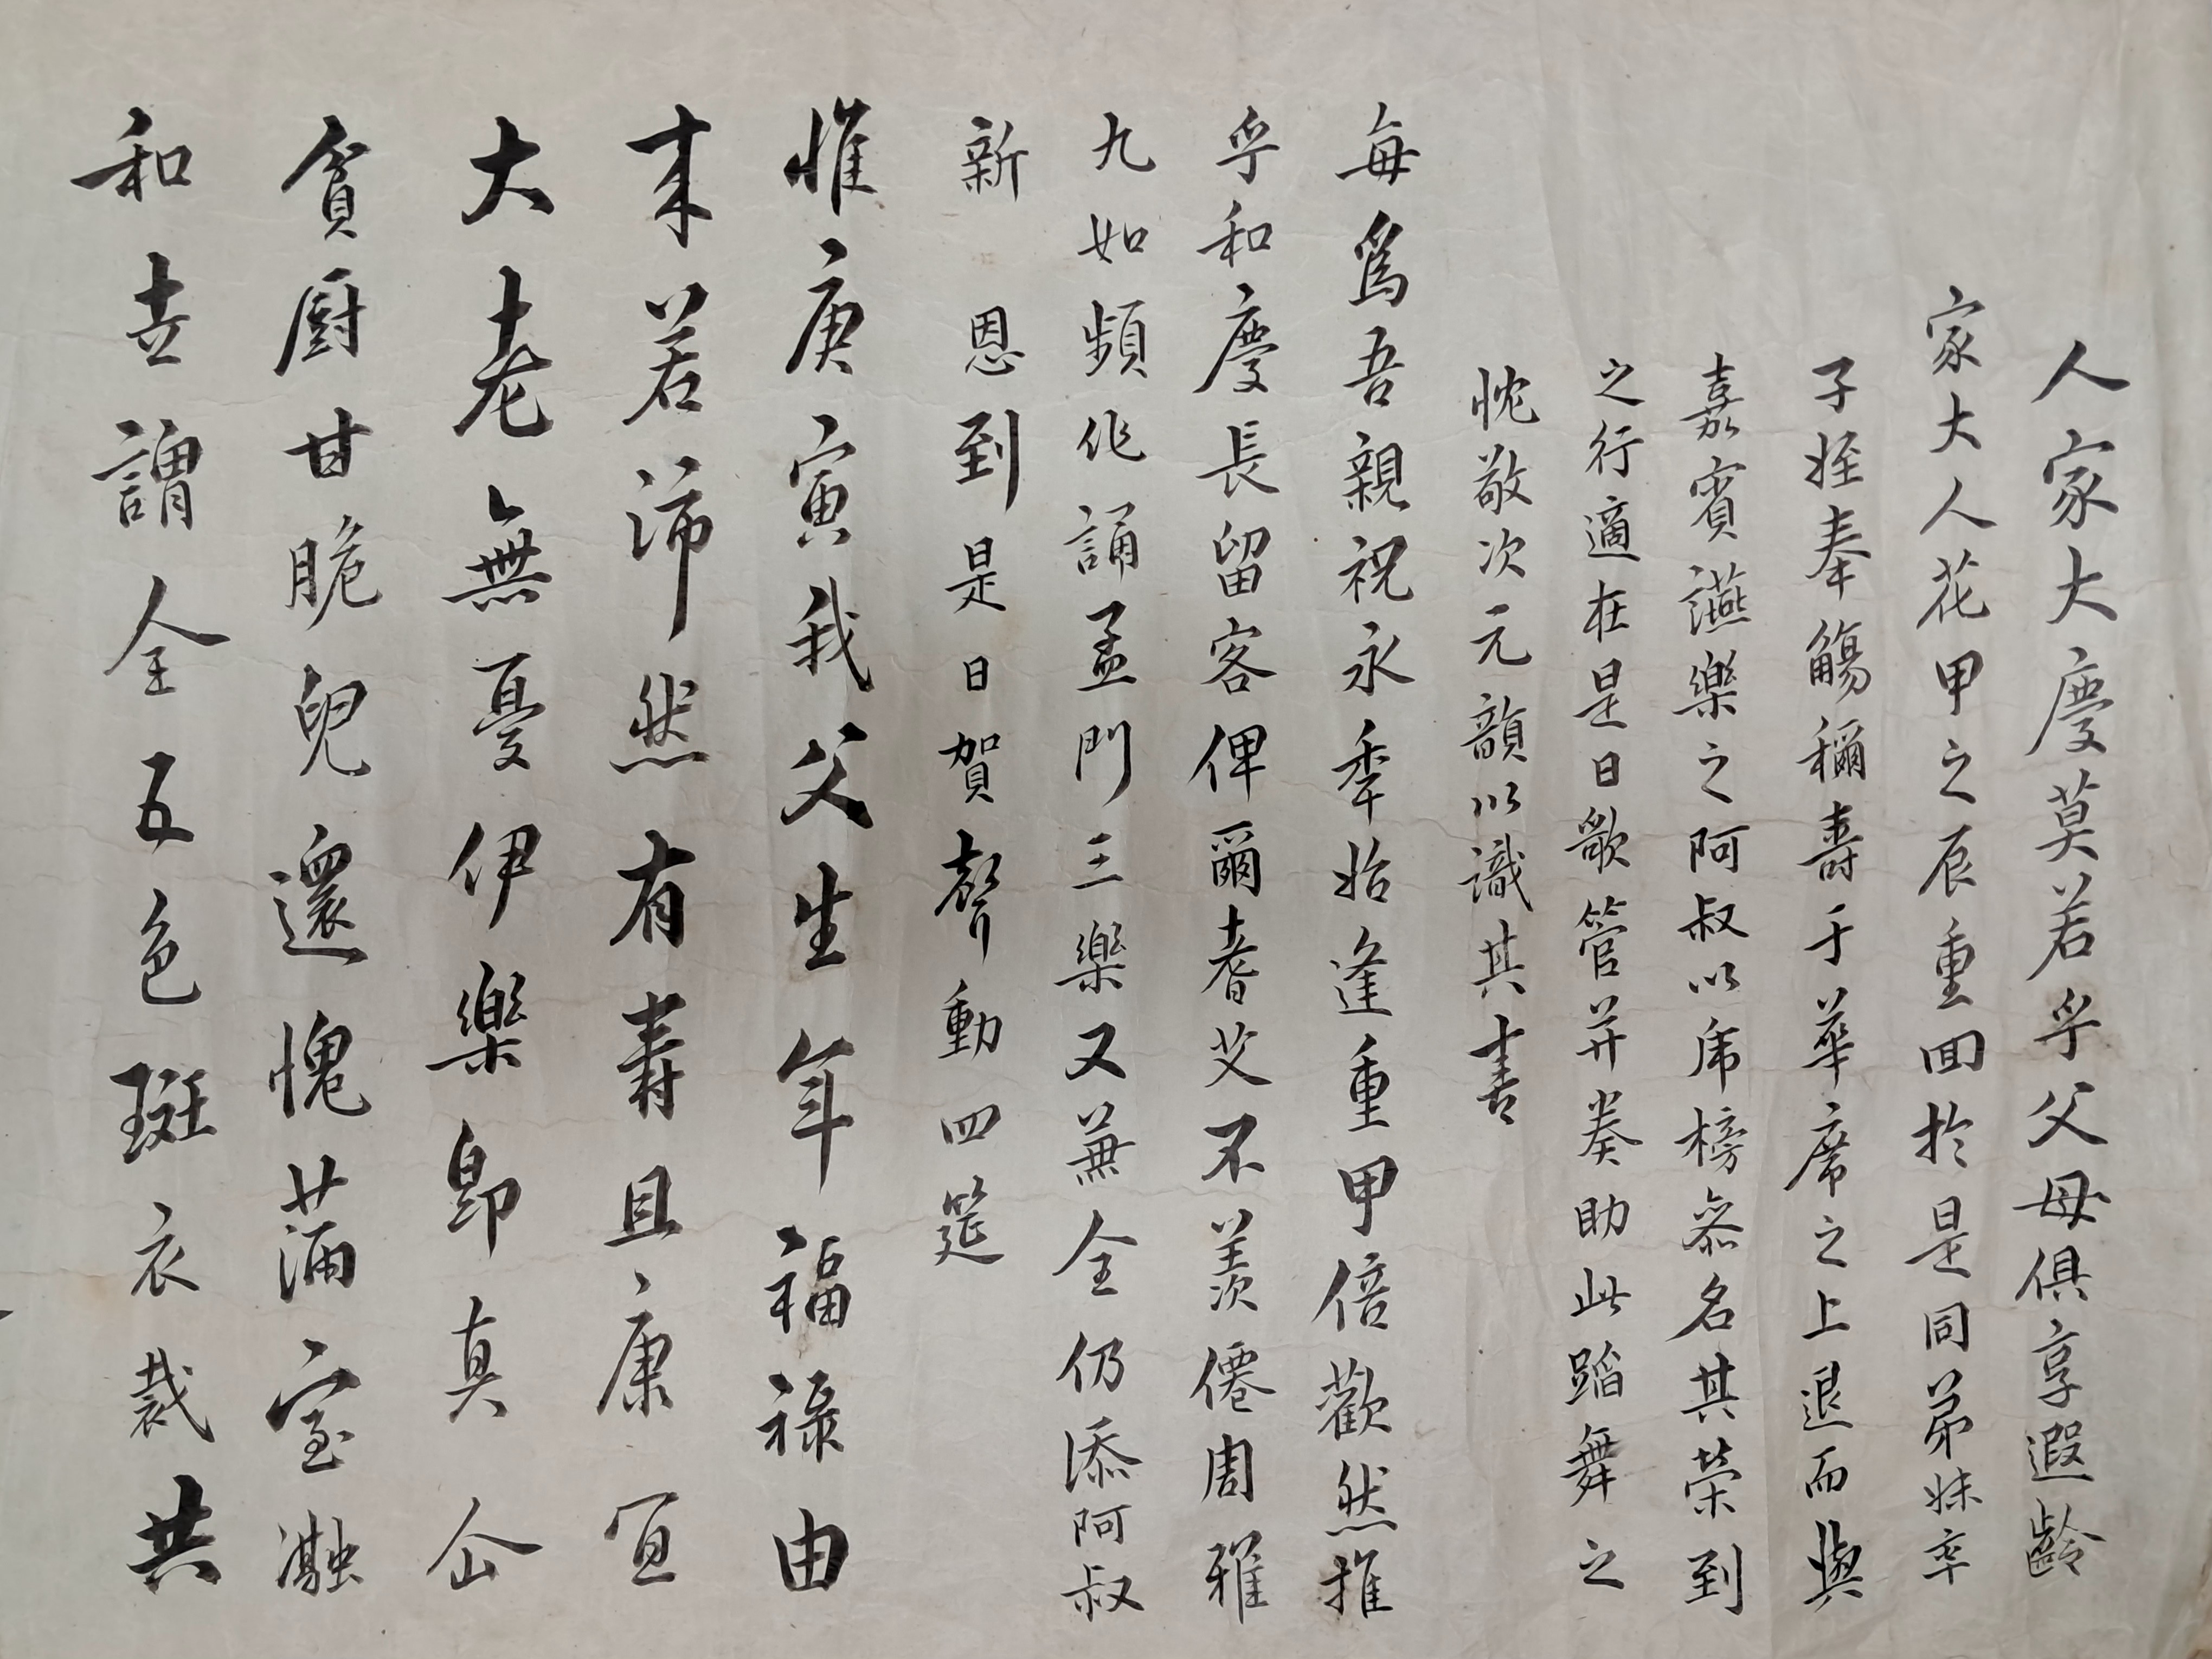 人家大慶莫若乎父母俱享遐齡
家大人花甲之辰重回於是同弟妹率
子姪奉觴稱壽于華席之上退而與
嘉賓讌樂之阿叔以虎榜參名其榮到
之行適在是日歌管并奏助此蹈舞之
忱敬次元韻以識其喜
每爲吾親祝永秊始逢重甲倍歡然推
乎和慶長留客俾爾耆艾不羨僊周雅
九如頻作誦孟門三樂又兼全仍添阿叔
新恩到是日賀聲動四筵
惟庚寅我父生年福祿由
来若沛然有壽且康宜
大老無憂伊樂卽真仚
貧廚甘脆兒還愧滿室瀜
和喜謂全五色斑衣裁共